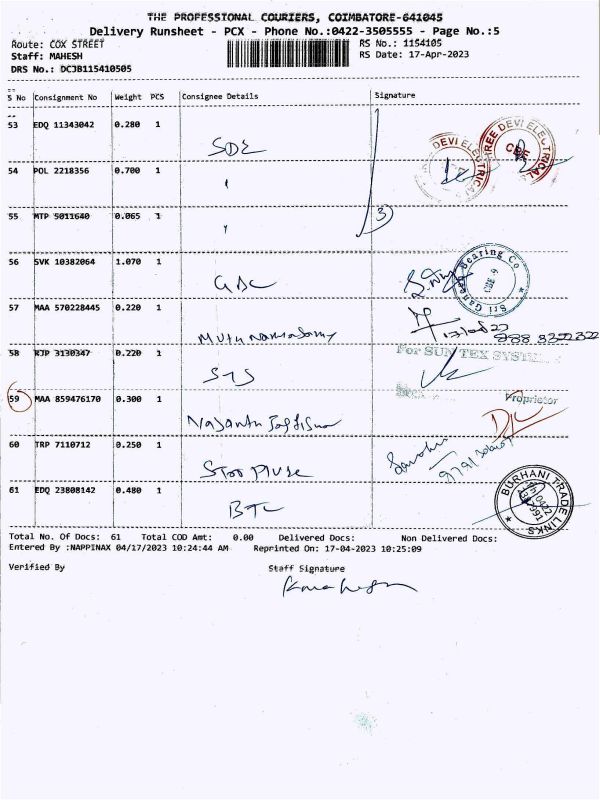 THE PROFESSIONAL COURIERS, COIMBATORE-641045
Delivery Runsheet - PCX - Phone No.:0422-3505555 - Page No.:5
Route: COX STREET RS No.: 1154105
Staff: MAHESH RS Date: 17-Apr-2023
DRS No.: DCJB115410505
S No Consignment No Weight PCS Consignee Details Signature
53 EDQ 11343042 0.280 1
SDE
DEVI ELECTRICAL
SREE DEVI ELECTRICAL
CBE
54 POL 2218356 0.700 1
55 MTP 5011640 0.065 1
3
56 SVK 10382064 1.070 1
GBC
Sri Ganesh Bearing Co
CBE 9
57 MAA 570228445 0.220 1
58 RJP 3130347 0.220 1
STS
For SUN TEX SYSTEMS
Proprietor
59 MAA 859476170 0.300 1
60 TRP 7110712 0.250 1
61 EDQ 23808142 0.480 1
BTL
BURHANI TRADE LINKS
Total No. Of Docs: 61 Total COD Amt: 0.00 Delivered Docs: Non Delivered Docs:
Entered By :NAPPINAX 04/17/2023 10:24:44 AM Reprinted On: 17-04-2023 10:25:09
Verified By Staff Signature